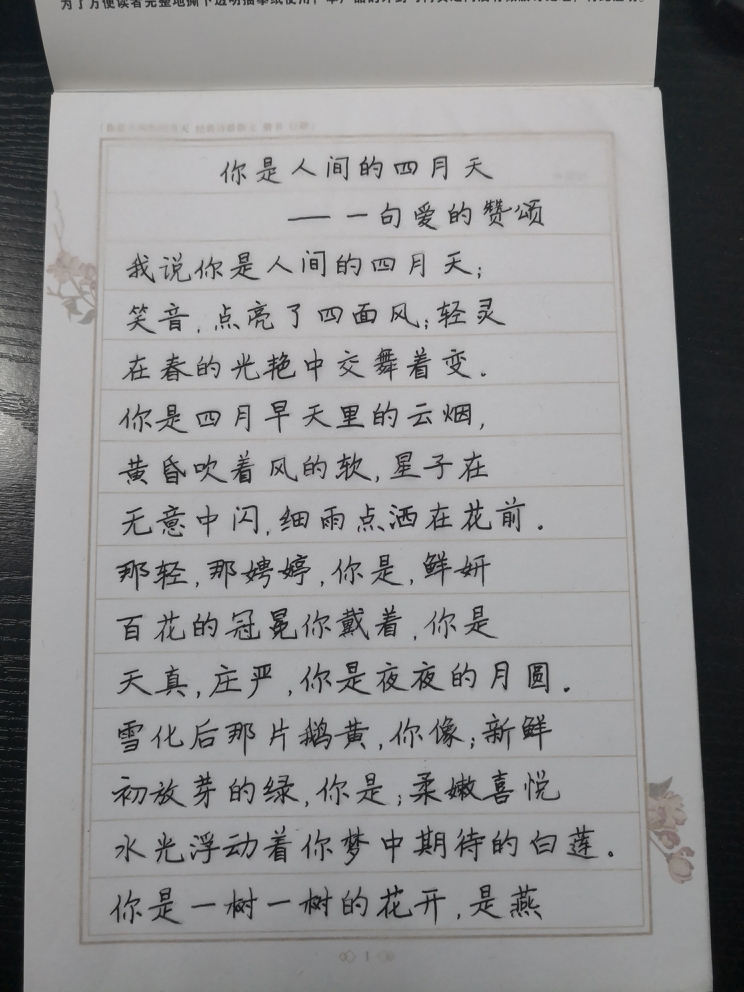 为了方便读者完整地撕下透明描摹纸使用
你是人间的四月天
——一句爱的赞颂
我说你是人间的四月天;
笑音,点亮了四面风;轻灵
在春的光艳中交舞着变.
你是四月早天里的云烟,
黄昏吹着风的软,星子在
无意中闪,细雨点洒在花前.
那轻,那娉婷,你是,鲜妍
百花的冠冕你戴着,你是
天真,庄严,你是夜夜的月圆.
雪化后那片鹅黄,你像;新鲜
初放芽的绿,你是;柔嫩喜悦
水光浮动着你梦中期待的白莲。
你是一树一树的花开,是燕
1